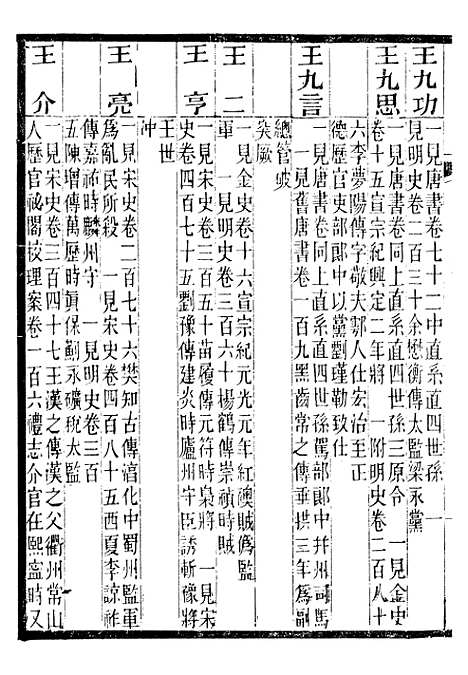 王九功
一見唐書卷七十二中直系直四世孫　一
見明史卷二百三十余懋衡傳太監梁永黨
王九思
一見唐書卷同上直系直四世孫三原令　一見金史
卷十五宣宗紀興定二年將　一附明史卷二百八十
六李夢陽傳字敬夫鄠人仕宏治至正
德歷官吏部郎中以黨劉瑾勒致仕
王九言
一見唐書卷同上直系直四世孫駕部郎中并州司馬
一見舊唐書卷一百九黑齒常之傳垂拱三年爲副
總管破
突厥
王二
一見金史卷十六宣宗紀元光元年紅襖賊僞監
軍　一見明史卷二百六十楊鶴傳崇禎時賊
王亨
一見宋史卷三百五十苗履傳元符時梟將　一見宋
史卷四百七十五劉豫傳建炎時廬州守臣誘斬豫將
王世
冲
王亮
一見宋史卷二百七十六樊知古傳淳化中蜀州監軍
爲亂民所殺　一見宋史卷四百八十五西夏李諒祚
傳嘉祐時麟州守　一見明史卷三百
五陳增傳萬歷時眞保薊永礦稅太監
王介
一見宋史卷三百四十七王漢之傳漢之父衢州常山
人歷官祕閣校理案卷一百六禮志介官在熙寧時又